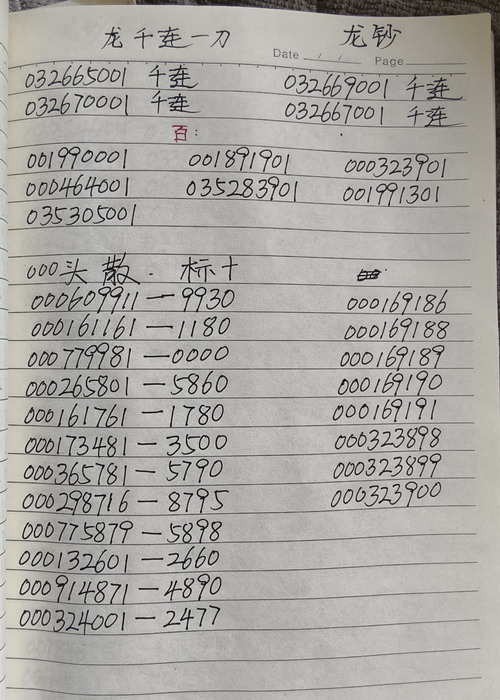 龙千连一刀 龙钞
Date / / Page
032665001 千连 032669001 千连
032670001 千连 032667001 千连
百:
001990001 001891901 000323901
000464001 035283901 001991301
035305001
000头 散. 标十
000609911—9930 000169186
000161161—1180 000169188
000779981—0000 000169189
000265801—5860 000169190
000161761—1780 000169191
000173481—3500 000323898
000365781—5790 000323899
000298716—8795 000323900
000775879—5898
000132601—2660
000914871—4890
000324001—2477